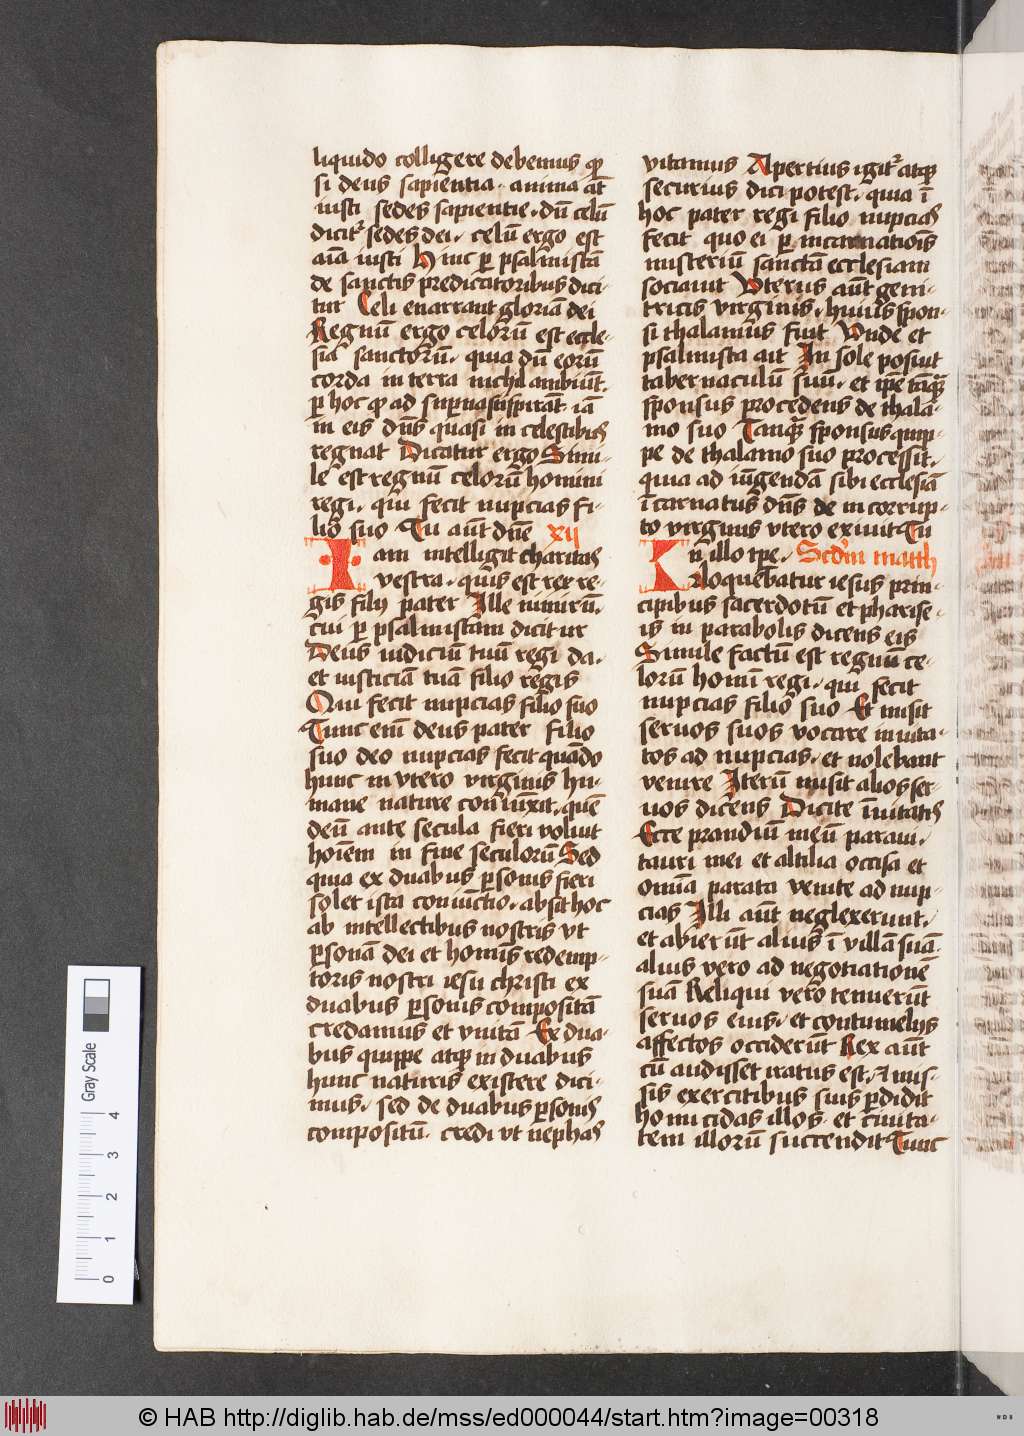 liquido colligere debemus qꝫ
si deus sapientia · anima aūt
iusti sedes sapientie · dū celū
dicit᷑ sedes dei · celū ergo est
aīa iusti Hinc ꝑ psalmistā
de sanctis predicatoribus dici-
tur Celi enarrant gloriā dei
Regnū ergo celorū est eccle-
sia sanctorū · quia dū eorū
corda in terra nichil ambiūt ·
ꝑ hoc qꝫ ad suꝑna suspirāt · iā
in eis dn̄s quasi in celestibus
regnat Dicatur ergo Simi-
le est regnū celorū homini
regi · qui fecit nupcias fi-
lio suo Tu aūt dn̄e xij
Iam intelligit charitas
vestra · quis est rex re-
gis filij pater Ille nimirū ·
cui ꝑ psalmistam dicitur
Deus iudiciū tuū regi da ·
et iusticiā tuā filio regis
Qui fecit nupcias filio suo
Tunc enī deus pater filio
suo deo nupcias fecit quādo
hunc in vtero virginis hu-
mane nature coniūxit · quē
deū ante secula fieri voluit
hoīem in fine seculorū Sed
quia ex duabus ꝑsonis fieri
solet ista coniūctio · absit hoc
ab intellectibus nostris vt
ꝑsonā dei et homīs redemp-
toris nostri iesu christi ex
duabus ꝑsonis compositā
credamus et vnitā Ex dua-
bus quippe atqꝫ in duabus
hunc naturis existere dici-
mus · sed de duabus ꝑsonis
compositū · credi vt nephas
vitamus Apertius igit᷑ atqꝫ
securius dici potest · quia ī
hoc pater regi filio nupcias
fecit quo ei ꝑ incarnatiōis
misteriū sanctā ecclesiam
sociauit Vterus aūt geni-
tricis virginis · huius spon-
si thalamus fuit Vnde et
psalmista ait In sole posuit
tabernaculū suū · et ip̄e tāqȝ
sponsus procedens de thala-
mo suo Tanqȝ sponsus quip-
pe de thalamo suo processit ·
quia ad iūgendā sibi ecclesiā
īcarnatus dn̄s de incorrup-
to virginis vtero exiuit Tu
In illo tp̄e · Scdm matth
Loquebatur iesus prin-
cipibus sacerdotū et pharise-
is in parabolis dicens eis
Simile factū est regnū ce-
lorū homī regi · qui fecit
nupcias filio suo Et misit
seruos suos vocare inuita-
tos ad nupcias · et nolebant
venire Iterū misit alios ser-
uos dicens Dicite īuitatis
Ecce prandiū meū paraui ·
tauri mei et altilia occisa et
omīa parata venite ad nup-
cias Illi aūt neglexerunt ·
et abierūt alius ī villā suā ·
alius vero ad negotiationē
suā Reliqui vero tenuerūt
seruos eius · et contumelijs
affectos occiderūt Rex aūt
cū audisset iratus est · A mis-
sis exercitibus suis ꝑdidit
homicidas illos · et ciuita-
tem illorū succendit Tunc
Gray Scale
4
3
2
1
0
© HAB http://diglib.hab.de/mss/ed000044/start.htm?image=00318